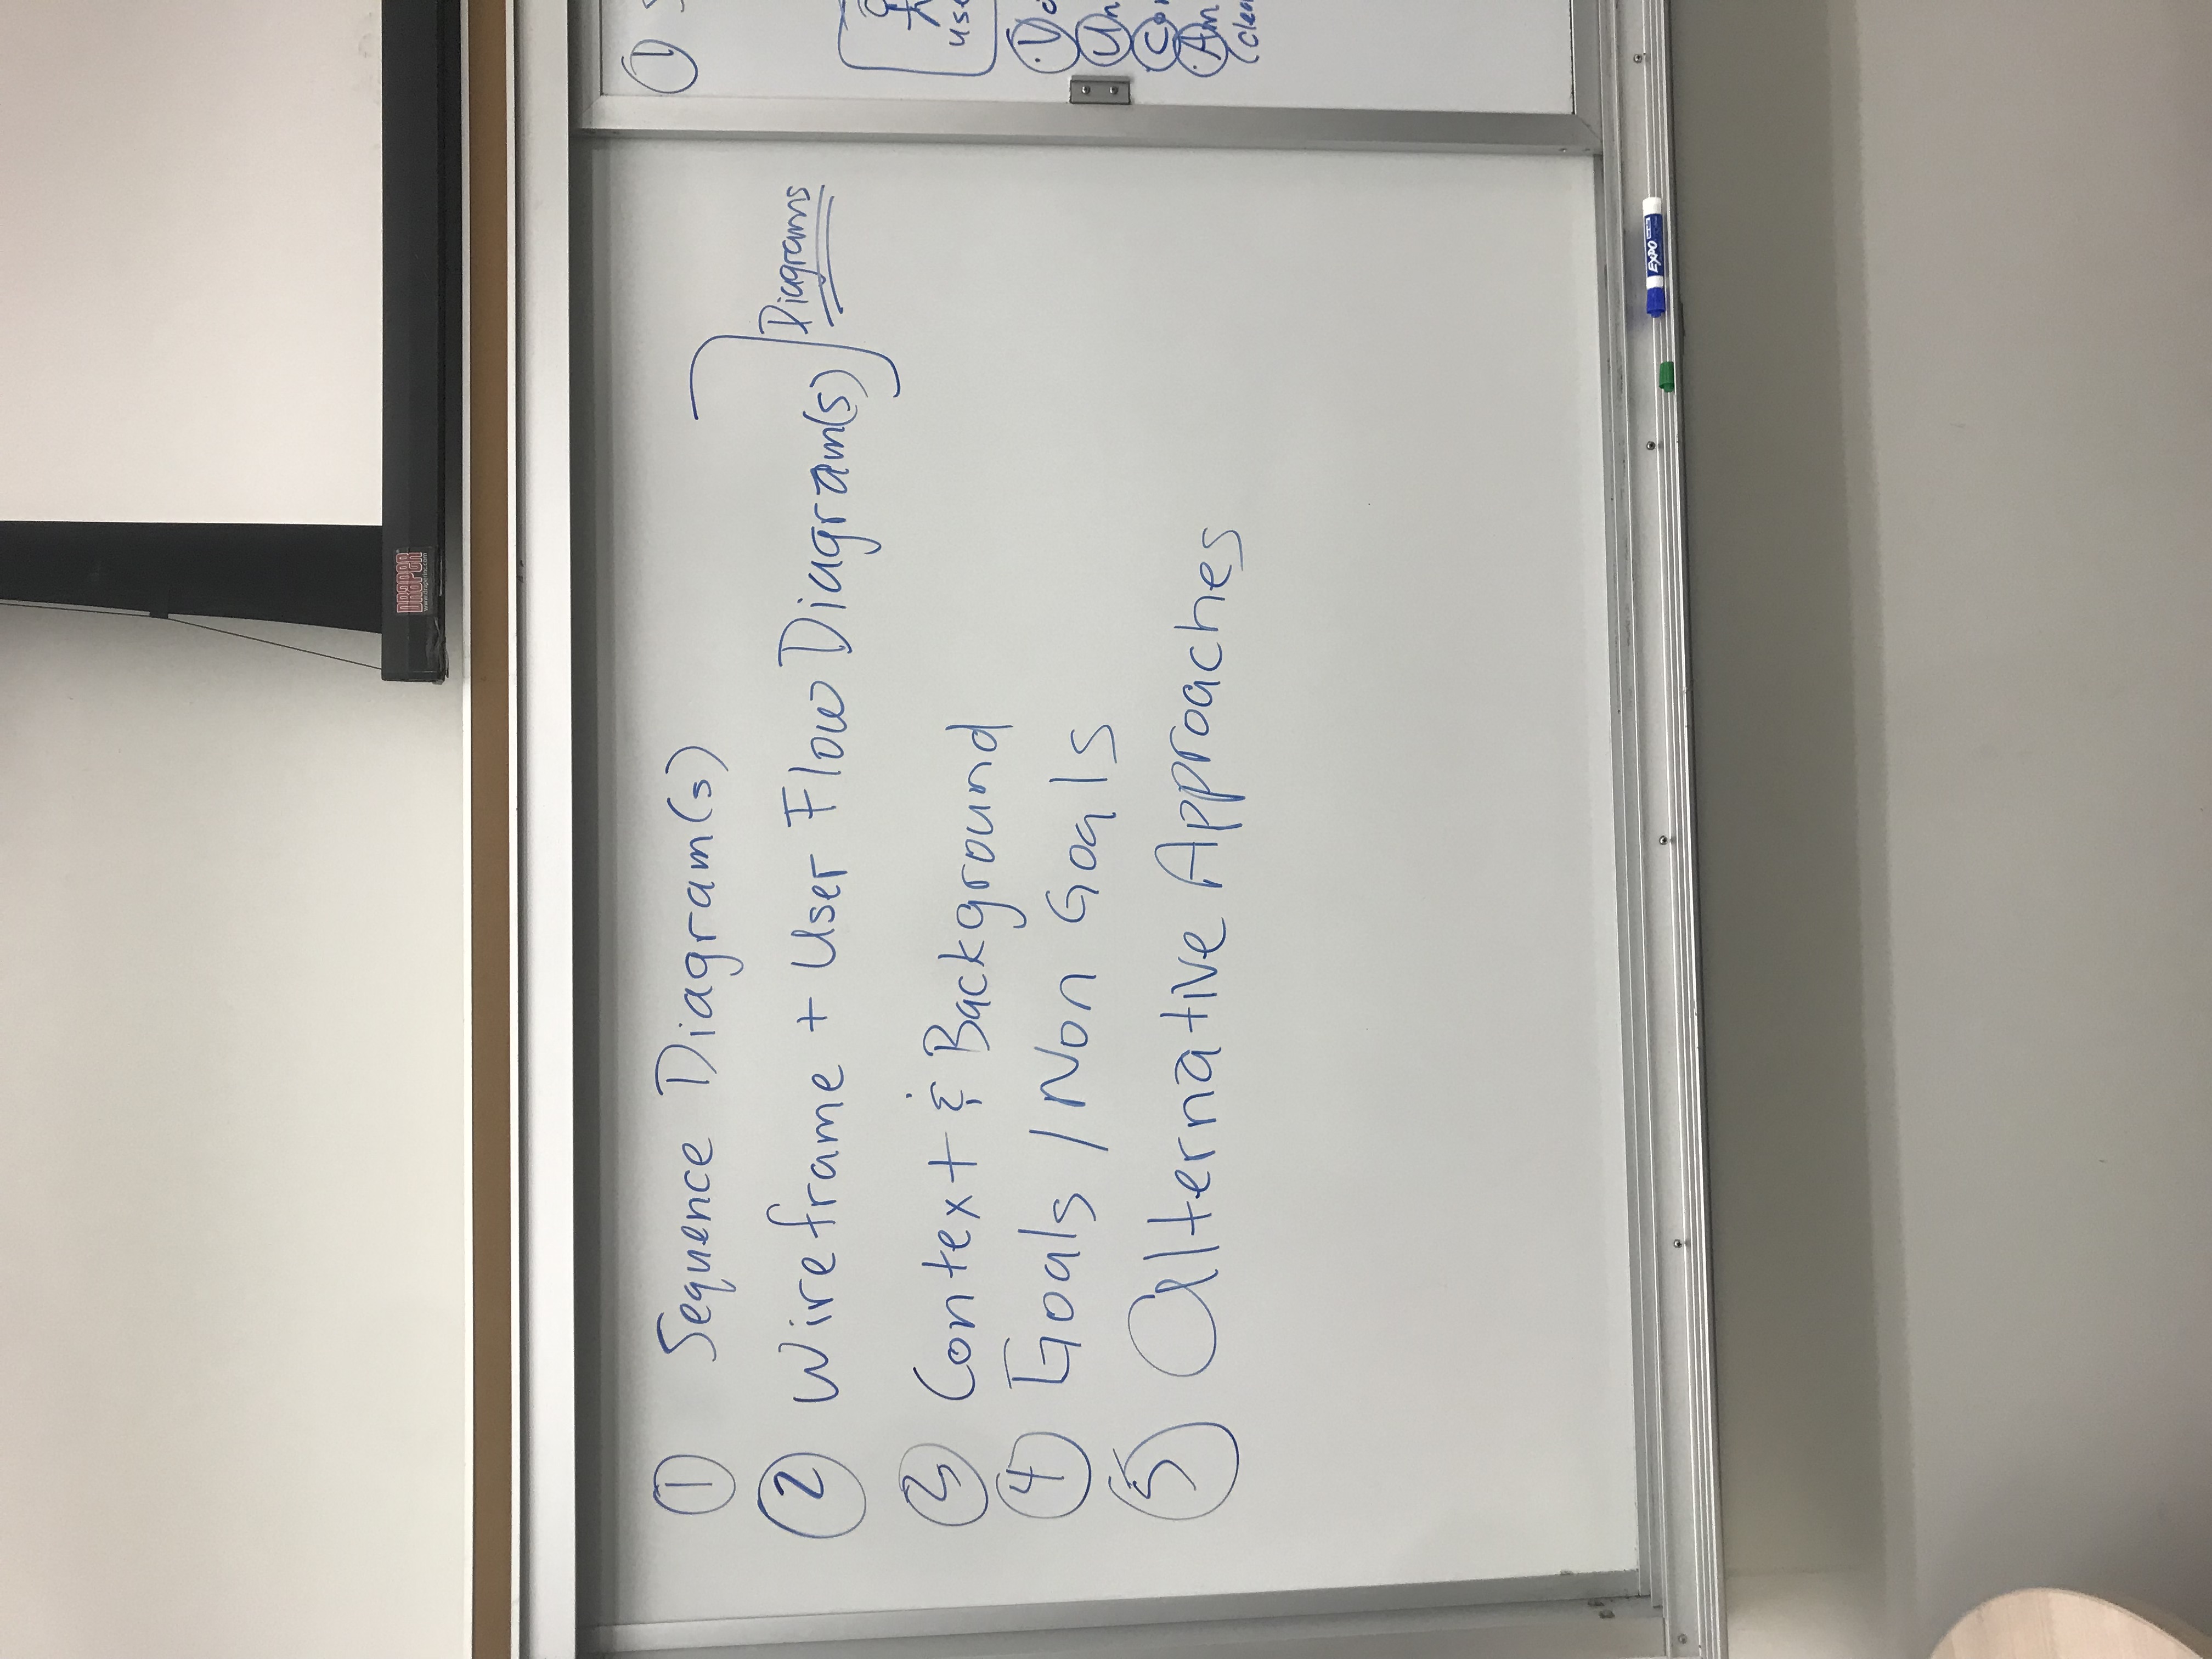 DRAPER
www.draperinc.com
1 Sequence Diagram(s)
2 Wireframe + User Flow Diagram(s)
Diagrams
3 Context & Background
4 Goals / Non Goals
5 Alternative Approaches
1
EXPO